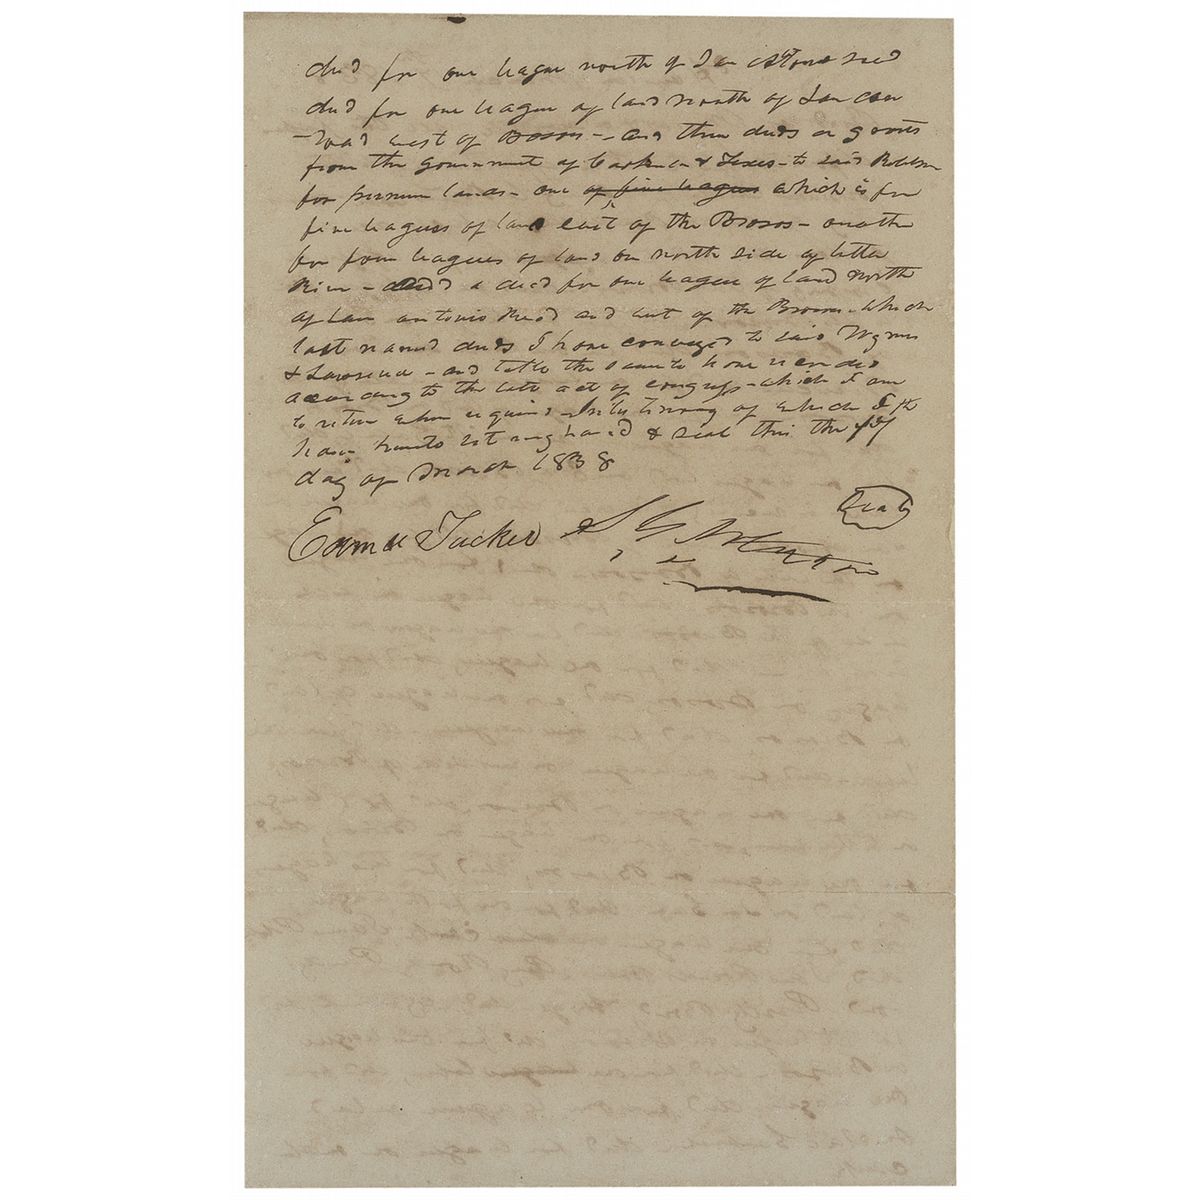 deed for one league north of San Antonio road
deed for one league of land north of San
Road west of Brosos - and then deeds or grants
from the government of & Texas - to said
for premium lands - one of five leagues which is for
five leagues of land east of the Brosos - another
for four leagues of land on north side of little
River - a deed for one league of land north
of San antonio Road and west of the Brosos - which
last named deeds I have conveyed to said
& Lawrence - and take the same to have recorded
according to the late act of congress - which I am
to return when required - In testimony of which I
have hereunto set my hand & seal this the
day of March 1838
Seal
Tucker S